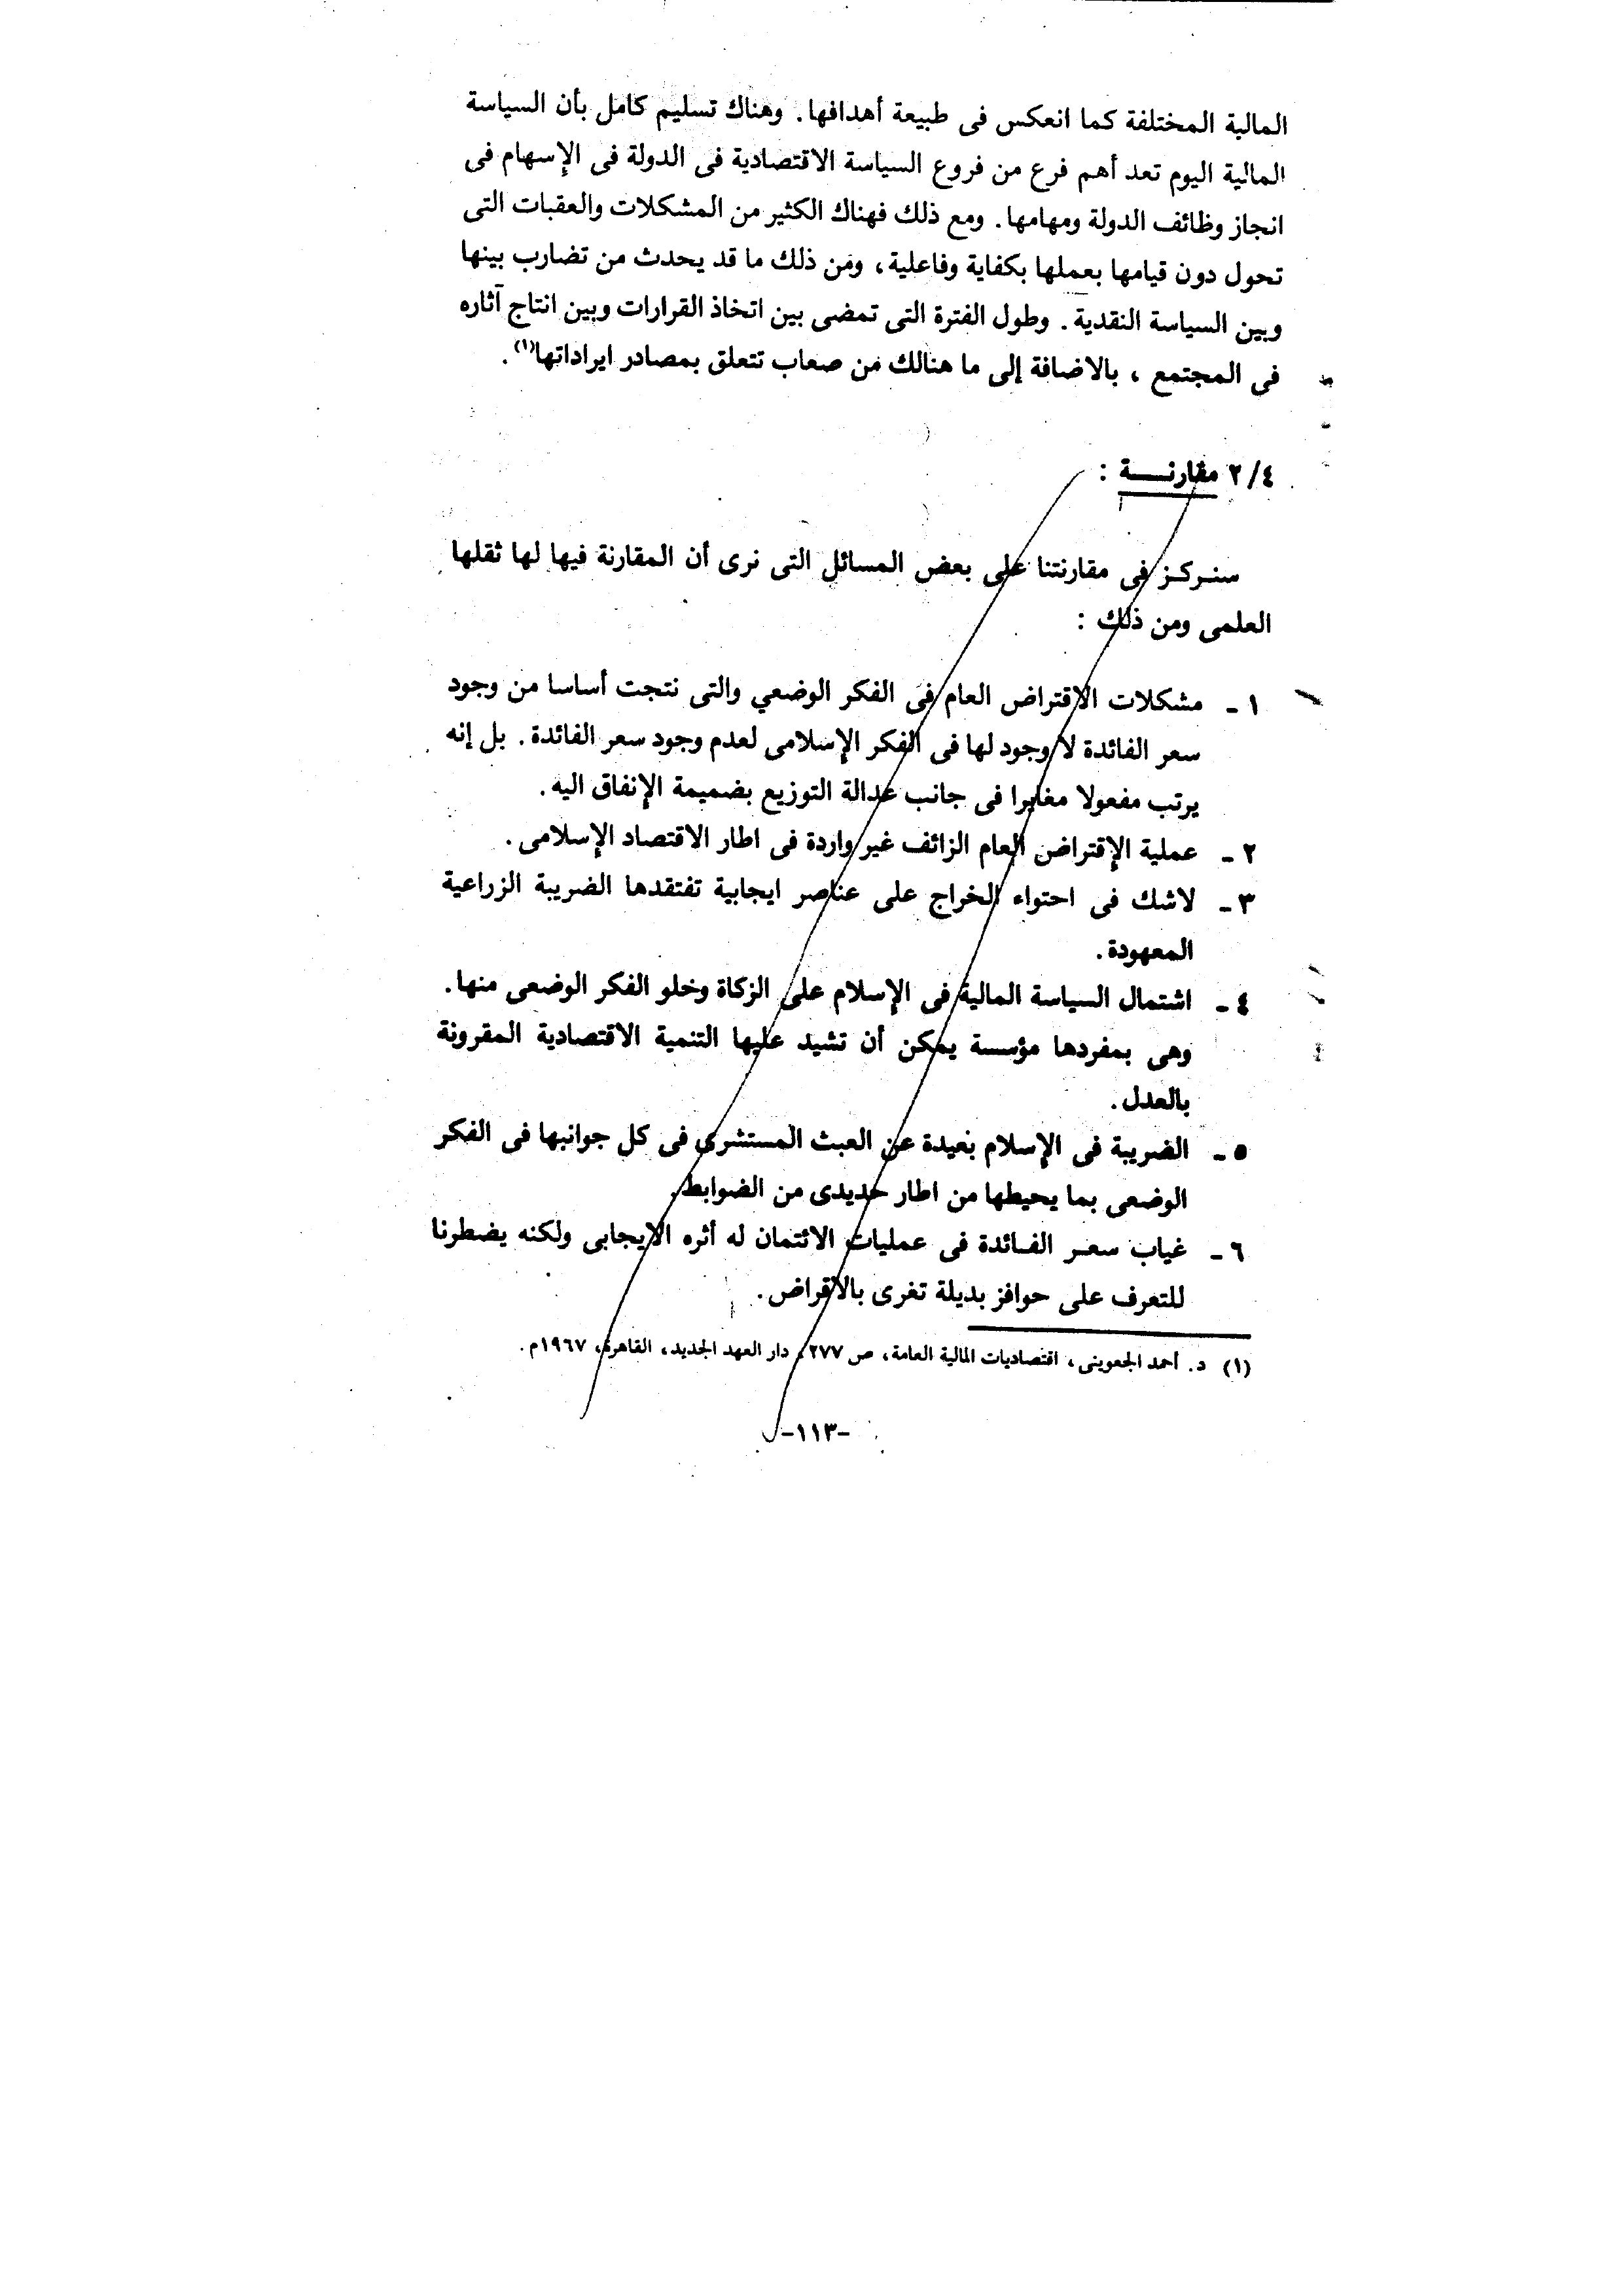 المالية المختلفة كما انعكس فى طبيعة أهدافها. وهناك تسليم كامل بأن السياسة
المالية اليوم تعد أهم فرع من فروع السياسة الاقتصادية فى الدولة فى الإسهام فى
انجاز وظائف الدولة ومهامها. ومع ذلك فهناك الكثير من المشكلات والعقبات التى
تحول دون قيامها بعملها بكفاية وفاعلية، ومن ذلك ما قد يحدث من تضارب بينها
وبين السياسة النقدية. وطول الفترة التى تمضى بين اتخاذ القرارات وبين انتاج آثاره
فى المجتمع ، بالاضافة إلى ما هنالك من صعاب تتعلق بمصادر ايراداتها(١).
٢/٤ مقارنـــة :
سنركز فى مقارنتنا على بعض المسائل التى نرى أن المقارنة فيها لها ثقلها
العلمى ومن ذلك :
١ - مشكلات الاقتراض العام فى الفكر الوضعي والتى نتجت أساسا من وجود
سعر الفائدة لا وجود لها فى الفكر الإسلامى لعدم وجود سعر الفائدة. بل إنه
يرتب مفعولا مغايرا فى جانب عدالة التوزيع بضميمة الإنفاق اليه.
٢ - عملية الإقتراض العام الزائف غير واردة فى اطار الاقتصاد الإسلامى.
٣ - لاشك فى احتواء الخراج على عناصر ايجابية تفتقدها الضريبة الزراعية
المعهودة.
٤ - اشتمال السياسة المالية فى الإسلام على الزكاة وخلو الفكر الوضعى منها.
وهى بمفردها مؤسسة يمكن أن تشيد عليها التنمية الاقتصادية المقرونة
بالعدل.
٥ - الضريبة فى الإسلام بعيدة عن العبث المستشرى فى كل جوانبها فى الفكر
الوضعى بما يحيطها من اطار حديدى من الضوابط.
٦ - غياب سعر الفائدة فى عمليات الائتمان له أثره الايجابى ولكنه يضطرنا
للتعرف على حوافز بديلة تغرى بالاقراض.
(١) د. أحمد الجعوينى، اقتصاديات المالية العامة، ص ٢٧٧، دار العهد الجديد، القاهرة، ١٩٦٧م.
-١١٣-